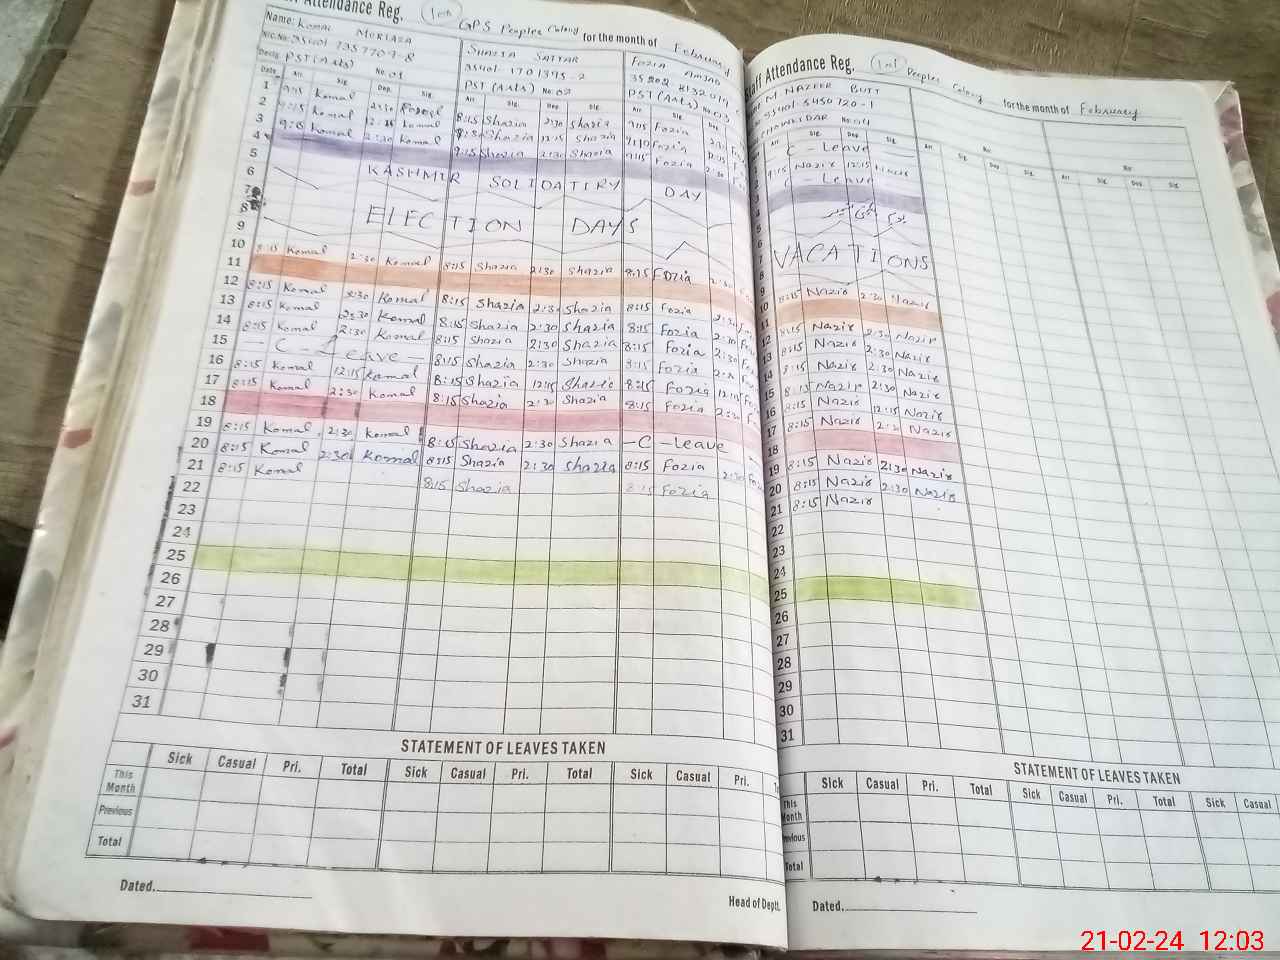 Attendance Reg. GPS Peoples Colony for the month of February
Name: Komal MURTAZA SHAZIA SATTAR FOZIA AMJAD
Desig. PST (Arts) No. 01 PST (Arts) No: 02 PST (Arts) No: 03
Date Arr Sig. Dep. Sig. Arr Sig. Dep. Sig. Arr Sig. Dep.
1 9:15 Komal 2:30 8:15 Shazia 2:30 Shazia 9:15 Fozia
2 9:15 Komal 12:15 Komal Shazia 12:15 Shazia Fozia
3 Komal 2:30 Komal 9:15 Shazia 2:30 Shazia 9:15 Fozia 2:30
4
5 KASHMIR SOLIDATIRY DAY
6
7 ELECTION DAYS
8
9
10 8:15 Komal 2:30 Komal 8:15 Shazia 2:30 Shazia 8:15 Fozia 2:30
11
12 8:15 Komal 2:30 Komal 8:15 Shazia 2:30 Shazia 8:15 Fozia
13 8:15 Komal 2:30 Komal 8:15 Shazia 2:30 Shazia 8:15 Fozia 2:30
14 8:15 Komal 2:30 Komal 8:15 Shazia 2:30 Shazia 8:15 Fozia 2:30
15 - C - Leave - 8:15 Shazia 2:30 Shazia 8:15 Fozia
16 8:15 Komal 12:15 Komal 8:15 Shazia 12:15 Shazia 8:15 Fozia 12:15
17 8:15 Komal 2:30 Komal 8:15 Shazia 2:30 Shazia 8:15 Fozia 2:30
18
19 8:15 Komal 2:30 Komal 8:15 Shazia 2:30 Shazia - C - Leave
20 8:15 Komal 2:30 Komal 8:15 Shazia 2:30 Shazia 8:15 Fozia 2:30
21 8:15 Komal 8:15 Shazia 8:15 Fozia
22
23
24
25
26
27
28
29
30
31
STATEMENT OF LEAVES TAKEN
Sick Casual Pri. Total Sick Casual Pri. Total Sick Casual Pri.
This Month
Previous
Total
Dated. Head of Deptt.
Attendance Reg. Peoples Colony for the month of February
M NAZEER BUTT
35401-5450720-1
No: 04 No:
Arr Sig. Dep. Sig. Arr Sig. Dep. Sig. Arr Sig. Dep. Sig.
C - Leave
9:15 Nazir 12:15
C - Leave
4
5
6
7 VACATIONS
8
9 8:15 Nazir 2:30 Nazir
10
11
12 8:15 Nazir 2:30 Nazir
13 8:15 Nazir 2:30 Nazir
14 8:15 Nazir 2:30 Nazir
15 8:15 Nazir 2:30 Nazir
16 8:15 Nazir 12:15 Nazir
17 8:15 Nazir 2:30 Nazir
18
19 8:15 Nazir 2:30 Nazir
20 8:15 Nazir 2:30 Nazir
21 8:15 Nazir
22
23
24
25
26
27
28
29
30
31
STATEMENT OF LEAVES TAKEN
Sick Casual Pri. Total Sick Casual Pri. Total Sick Casual
This Month
Previous
Total
Dated.
21-02-24 12:03